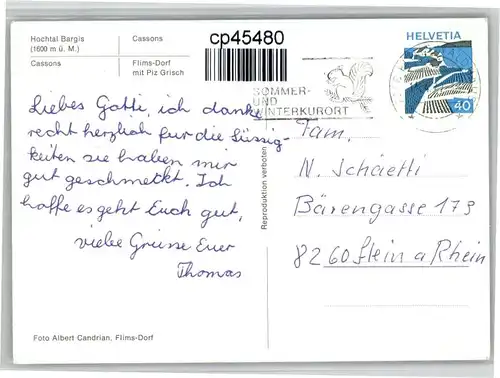 Hochtal Bargis
(1600 m ü. M.)
Cassons
Cassons
Flims-Dorf
mit Piz Grisch
cp45480
HELVETIA
40
SOMMER-
UND
WINTERKURORT
Liebes Gotte ich danke
recht herzlich für die Süssig-
keiten sie haben mir
gut geschmeckt. Ich
hoffe es geht Euch gut,
viele Grüsse Euer
Thomas
Reproduktion verboten
Fam.
N. Schäetti
Bärengasse 173
8260 Stein a Rhein
Foto Albert Candrian, Flims-Dorf